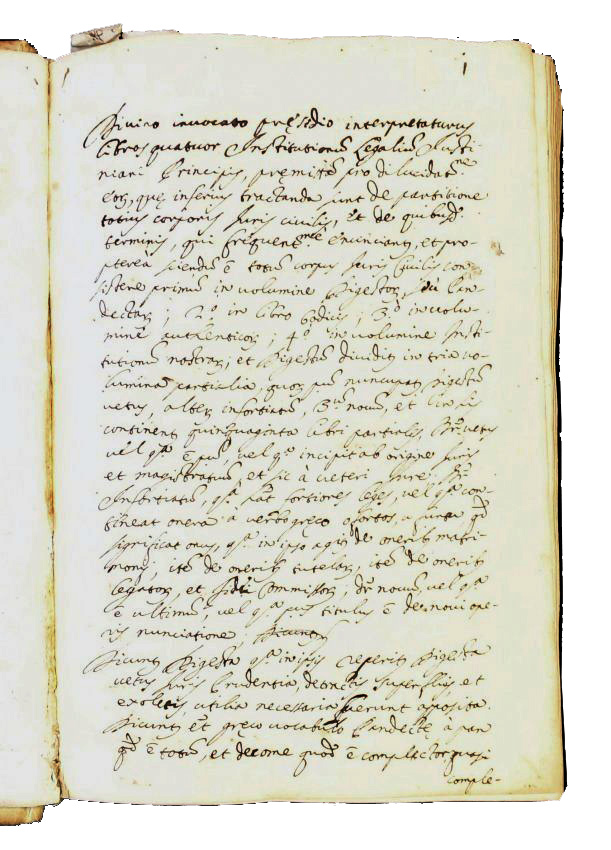 1
Divino invocato pręsidio interpretaturus
libros quatuor Institutionũ Legaliũ Justi-
niani Principis, pręmittã pro dilucidatne
eoꝝ, quę inferius tractanda sunt de partitione
totius corporis Juris civilis, et de quibusd.
terminis, qui frequentmte enuncianꝶ, et pro-
pterea sciendũ ẽ totũ corpus Juris Civilis con-
sistere primũ in volumine Digestoꝝ, seu Pan-
dectaꝝ; 2.º in libro Codicis; 3.º in volu-
mine authenticoꝝ; 4.º in volumine Insti-
tutionũ nostraꝝ; et Digestũ dividiꝶ in tria vo-
lumina particularia, quoꝝ nuncupaꝶ Digestũ
vetus, alteꝝ infortiatũ, 3.ũ novũ, et in his
continenꝶ quinquaginta libri partiales. vetus
vel qa ẽ vel qa incipit ab origine Juris
et magistratuũ, et sic à veteri Jure;
Infortiatũ, qa fortiores leges, vel qa con-
tineat onera à verbo gręco qd
significat onus, qa in ipso agiꝶ de onerib matri-
monij, itẽ de onerib tutelaꝝ, itẽ de onerib
legatoꝝ, et fidei commissoꝝ; dr novũ, vel qa
ẽ ultimũ, vel qa titulus ẽ de novi ope-
ris nunciatione; Dicunꝶ
Dicunꝶ Digesta qa in ipsis reperiꝶ Digesta
vetus Juris Prudentia, detractis superfluis, et
exoletis, utilia necessaria fuerunt apposita.
Dicunꝶ et gręco vocabulo Pandectę à pan
qd ẽ totũ, et decome quod ẽ complector quasi
comple-